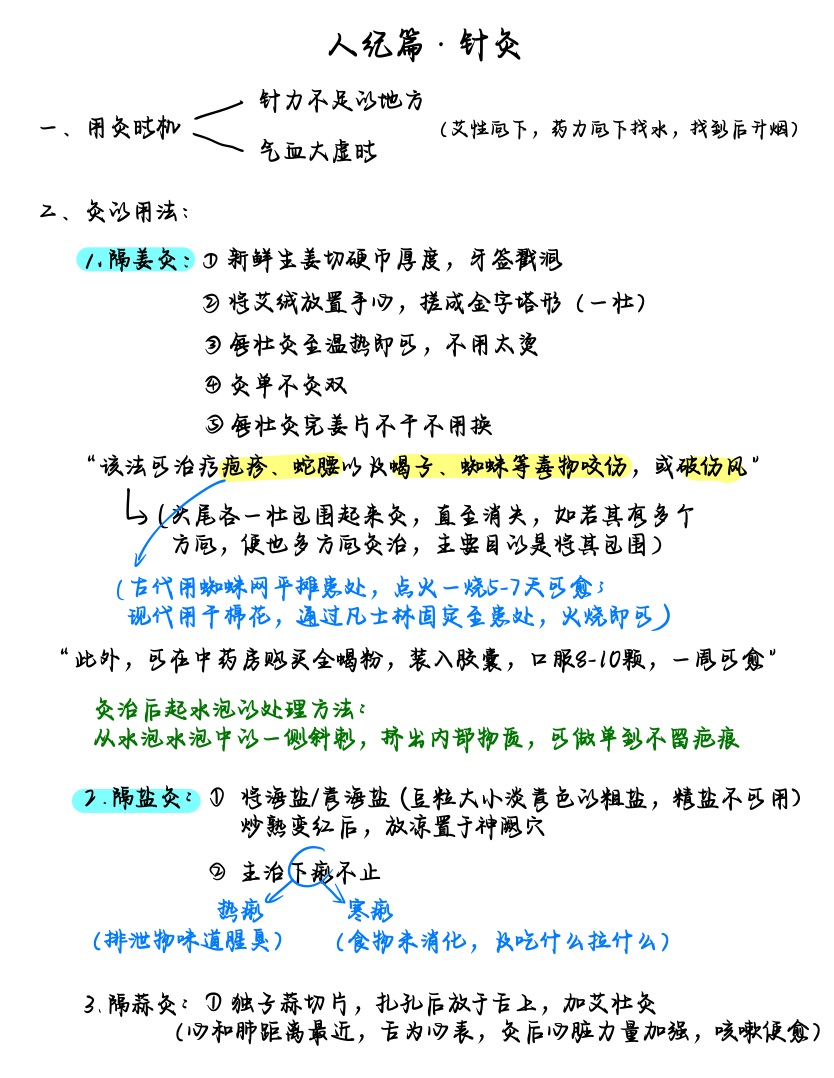 人纪篇·针灸
一、用灸时机
针力不足的地方
气血大虚时
（艾性向下，药力向下找水，找到后升烟）
二、灸的用法：
1.隔姜灸：① 新鲜生姜切硬币厚度，牙签戳洞
② 将艾绒放置手心，搓成金字塔形（一壮）
③ 每壮灸至温热即可，不用太烫
④ 灸单不灸双
⑤ 每壮灸完姜片不干不用换
“该法可治疗疱疹、蛇腰以及蝎子、蜘蛛等毒物咬伤，或破伤风”
（头尾各一壮包围起来灸，直至消失，如若其有多个
方向，便也多方向灸治，主要目的是将其包围）
（古代用蜘蛛网平摊患处，点火一烧5-7天可愈；
现代用干棉花，通过凡士林固定至患处，火烧即可）
“此外，可在中药房购买全蝎粉，装入胶囊，口服8-10颗，一周可愈”
灸治后起水泡的处理方法：
从水泡水泡中的一侧斜刺，挤出内部物质，可做单到不留疤痕
2.隔盐灸：① 将海盐/青海盐（豆粒大小淡青色的粗盐，精盐不可用）
炒熟变红后，放凉置于神阙穴
② 主治下痢不止
热痢 寒痢
（排泄物味道腥臭） （食物未消化，及吃什么拉什么）
3.隔蒜灸：① 独子蒜切片，扎孔后放于舌上，加艾壮灸
（心和肺距离最近，舌为心表，灸后心脏力量加强，咳嗽便愈）